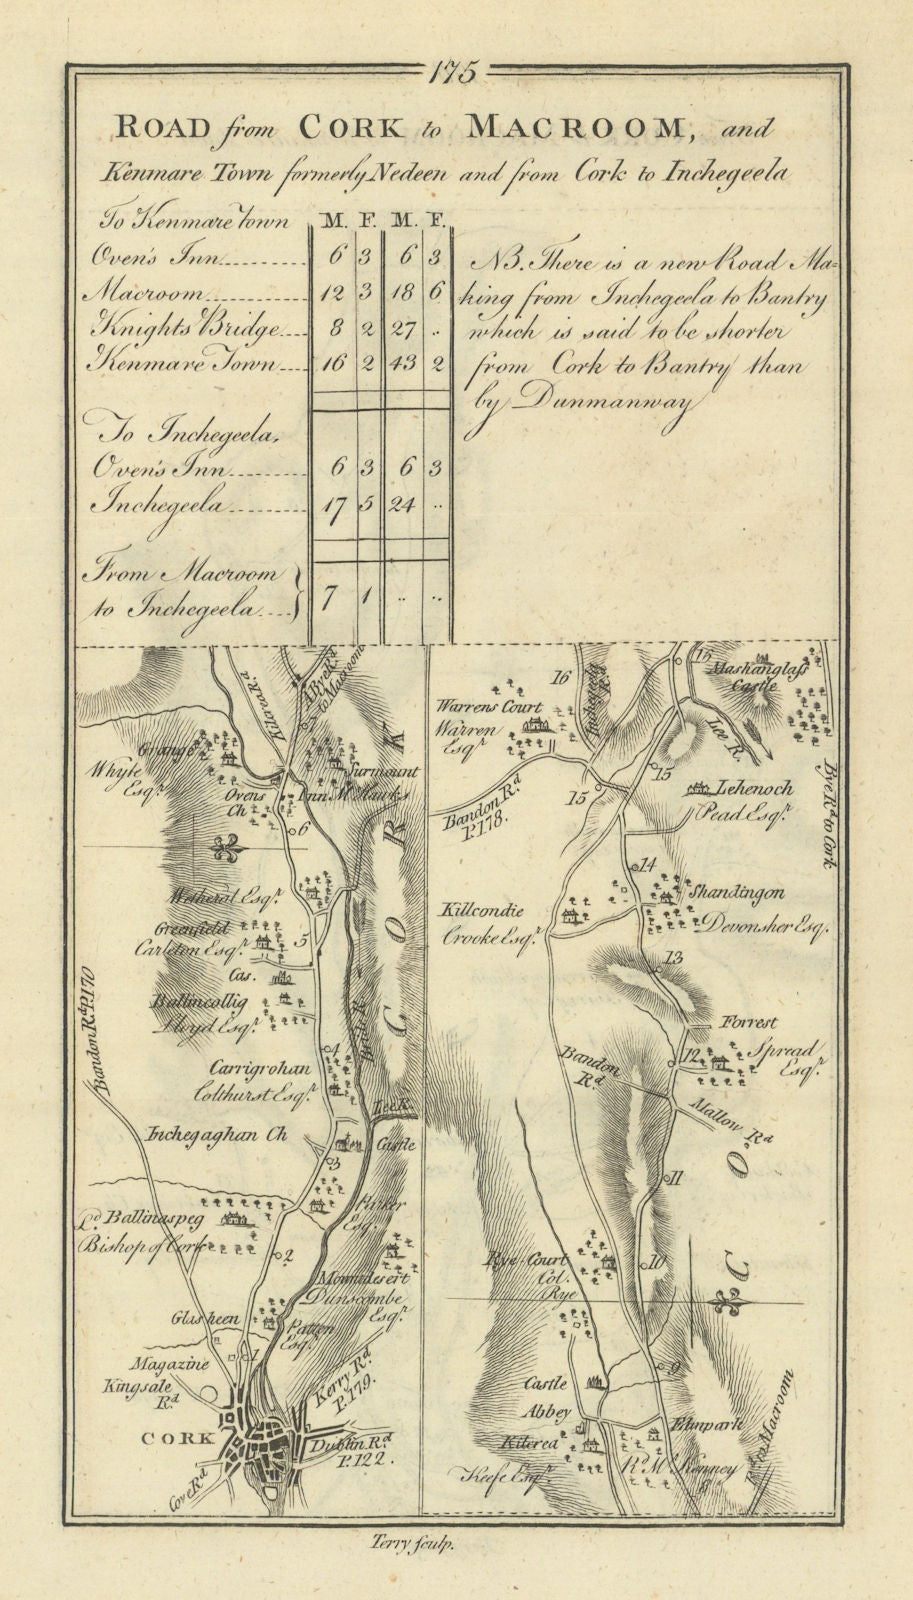 175
ROAD from CORK to MACROOM, and
Kenmare Town formerly Nedeen and from Cork to Inchegeela
To Kenmare Town M. F. M. F.
Oven's Inn 6 3 6 3
Macroom 12 3 18 6
Knights Bridge 8 2 27 ..
Kenmare Town 16 2 43 2
To Inchegeela.
Oven's Inn 6 3 6 3
Inchegeela 17 5 24 ..
From Macroom
to Inchegeela 7 1 .. ..
NB. There is a new Road Ma=
king from Inchegeela to Bantry
which is said to be shorter
from Cork to Bantry than
by Dunmanway
Kilcrea Rd
A Bye Rd
to Macroom
Grange
Whyte
Esqr.
Surmount
Ovens
Ch
Inn Mc. Hawks
6
Wetheral Esqr.
Greenfield
Carleton Esqr.
5
Cas.
Ballincollig
Lloyd Esqr.
Bride R.
CORK
Bandon Rd. P.170
4
Carrigrohan
Colthurst Esqr.
Lee R.
Inchegaghan Ch
Castle
3
Parker
Esqr.
Ld. Ballinaspeg
Bishop of Cork
2
Mountdesert
Dunscombe
Esqr.
Glasheen
Patten
Esqr.
1
Magazine
Kingsale
Rd.
Kerry Rd.
P.179.
CORK
Dublin Rd.
P.122.
Cove Rd
16
Inchegeela
Rd
15
Mashanglass
Castle
Warrens Court
Warren
Esqr.
Lee R.
15
15
Bandon Rd
P.178.
Lehenoch
Pead Esqr.
Bye Rd. to Cork
14
Shandingon
Devonsher Esq.
Killcondie
Crooke Esqr.
13
Forrest
Spread
Esqr.
12
Bandon
Rd.
Mallow Rd
11
CO
Rye-Court
Col.
Rye
10
9
Castle
Abbey
Kilcrea
Keefe Esqr.
Elmpark
Rd. Mc. Kenney
Rd. to Macroom
Terry sculp.